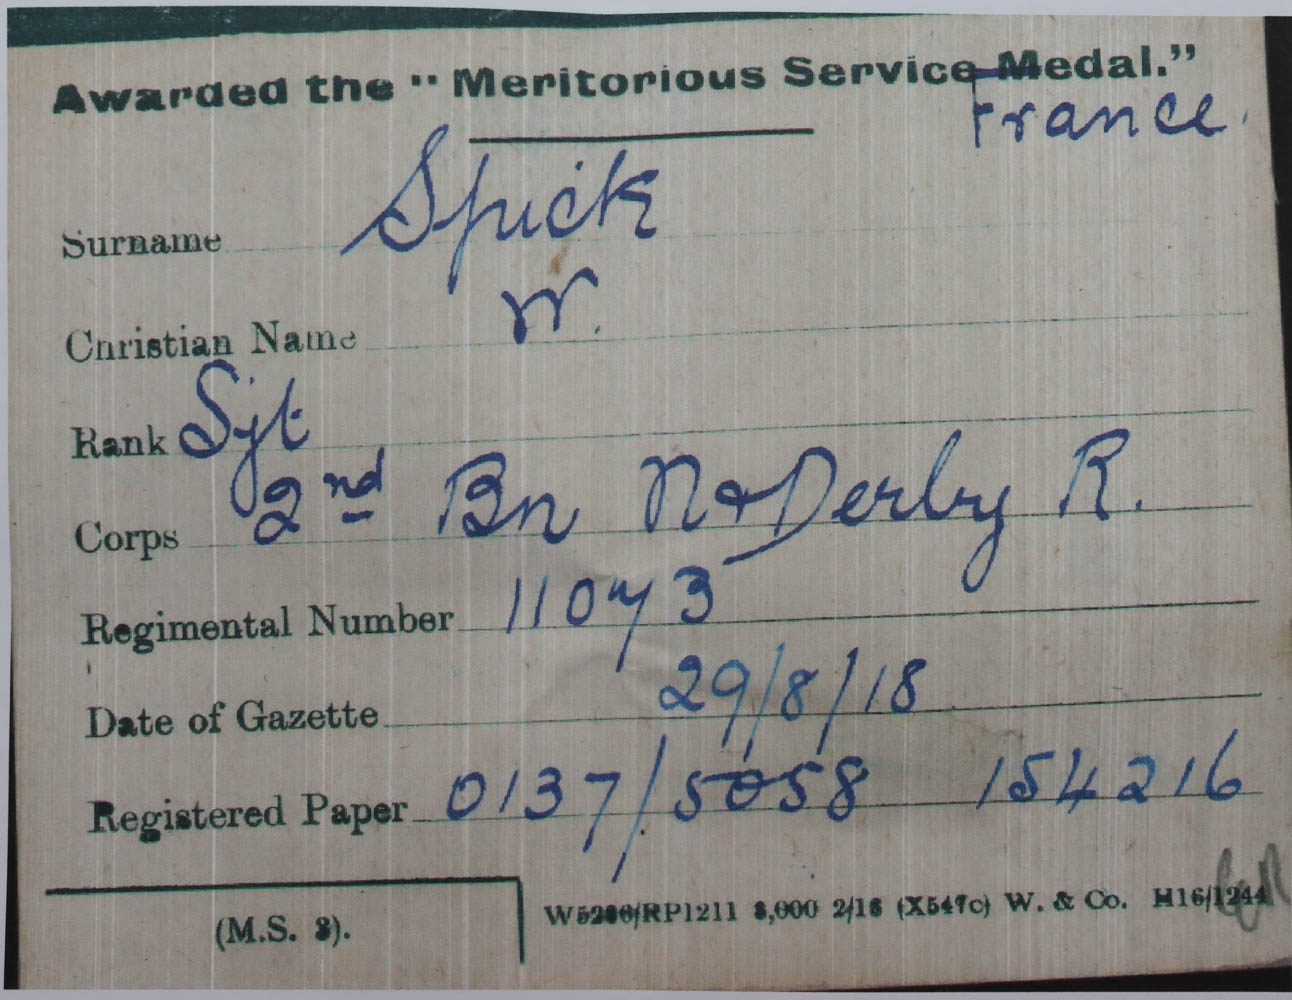 Awarded the "Meritorious Service Medal."
France.
Surname Spick
Christian Name W.
Rank Sgt
Corps 2nd Bn N & Derby R.
Regimental Number 11073
Date of Gazette 29/8/18
Registered Paper 0137/5058 154216
(M.S. 3).
W5286/RP1211 8,000 2/18 (X547c) W. & Co. H16/1244